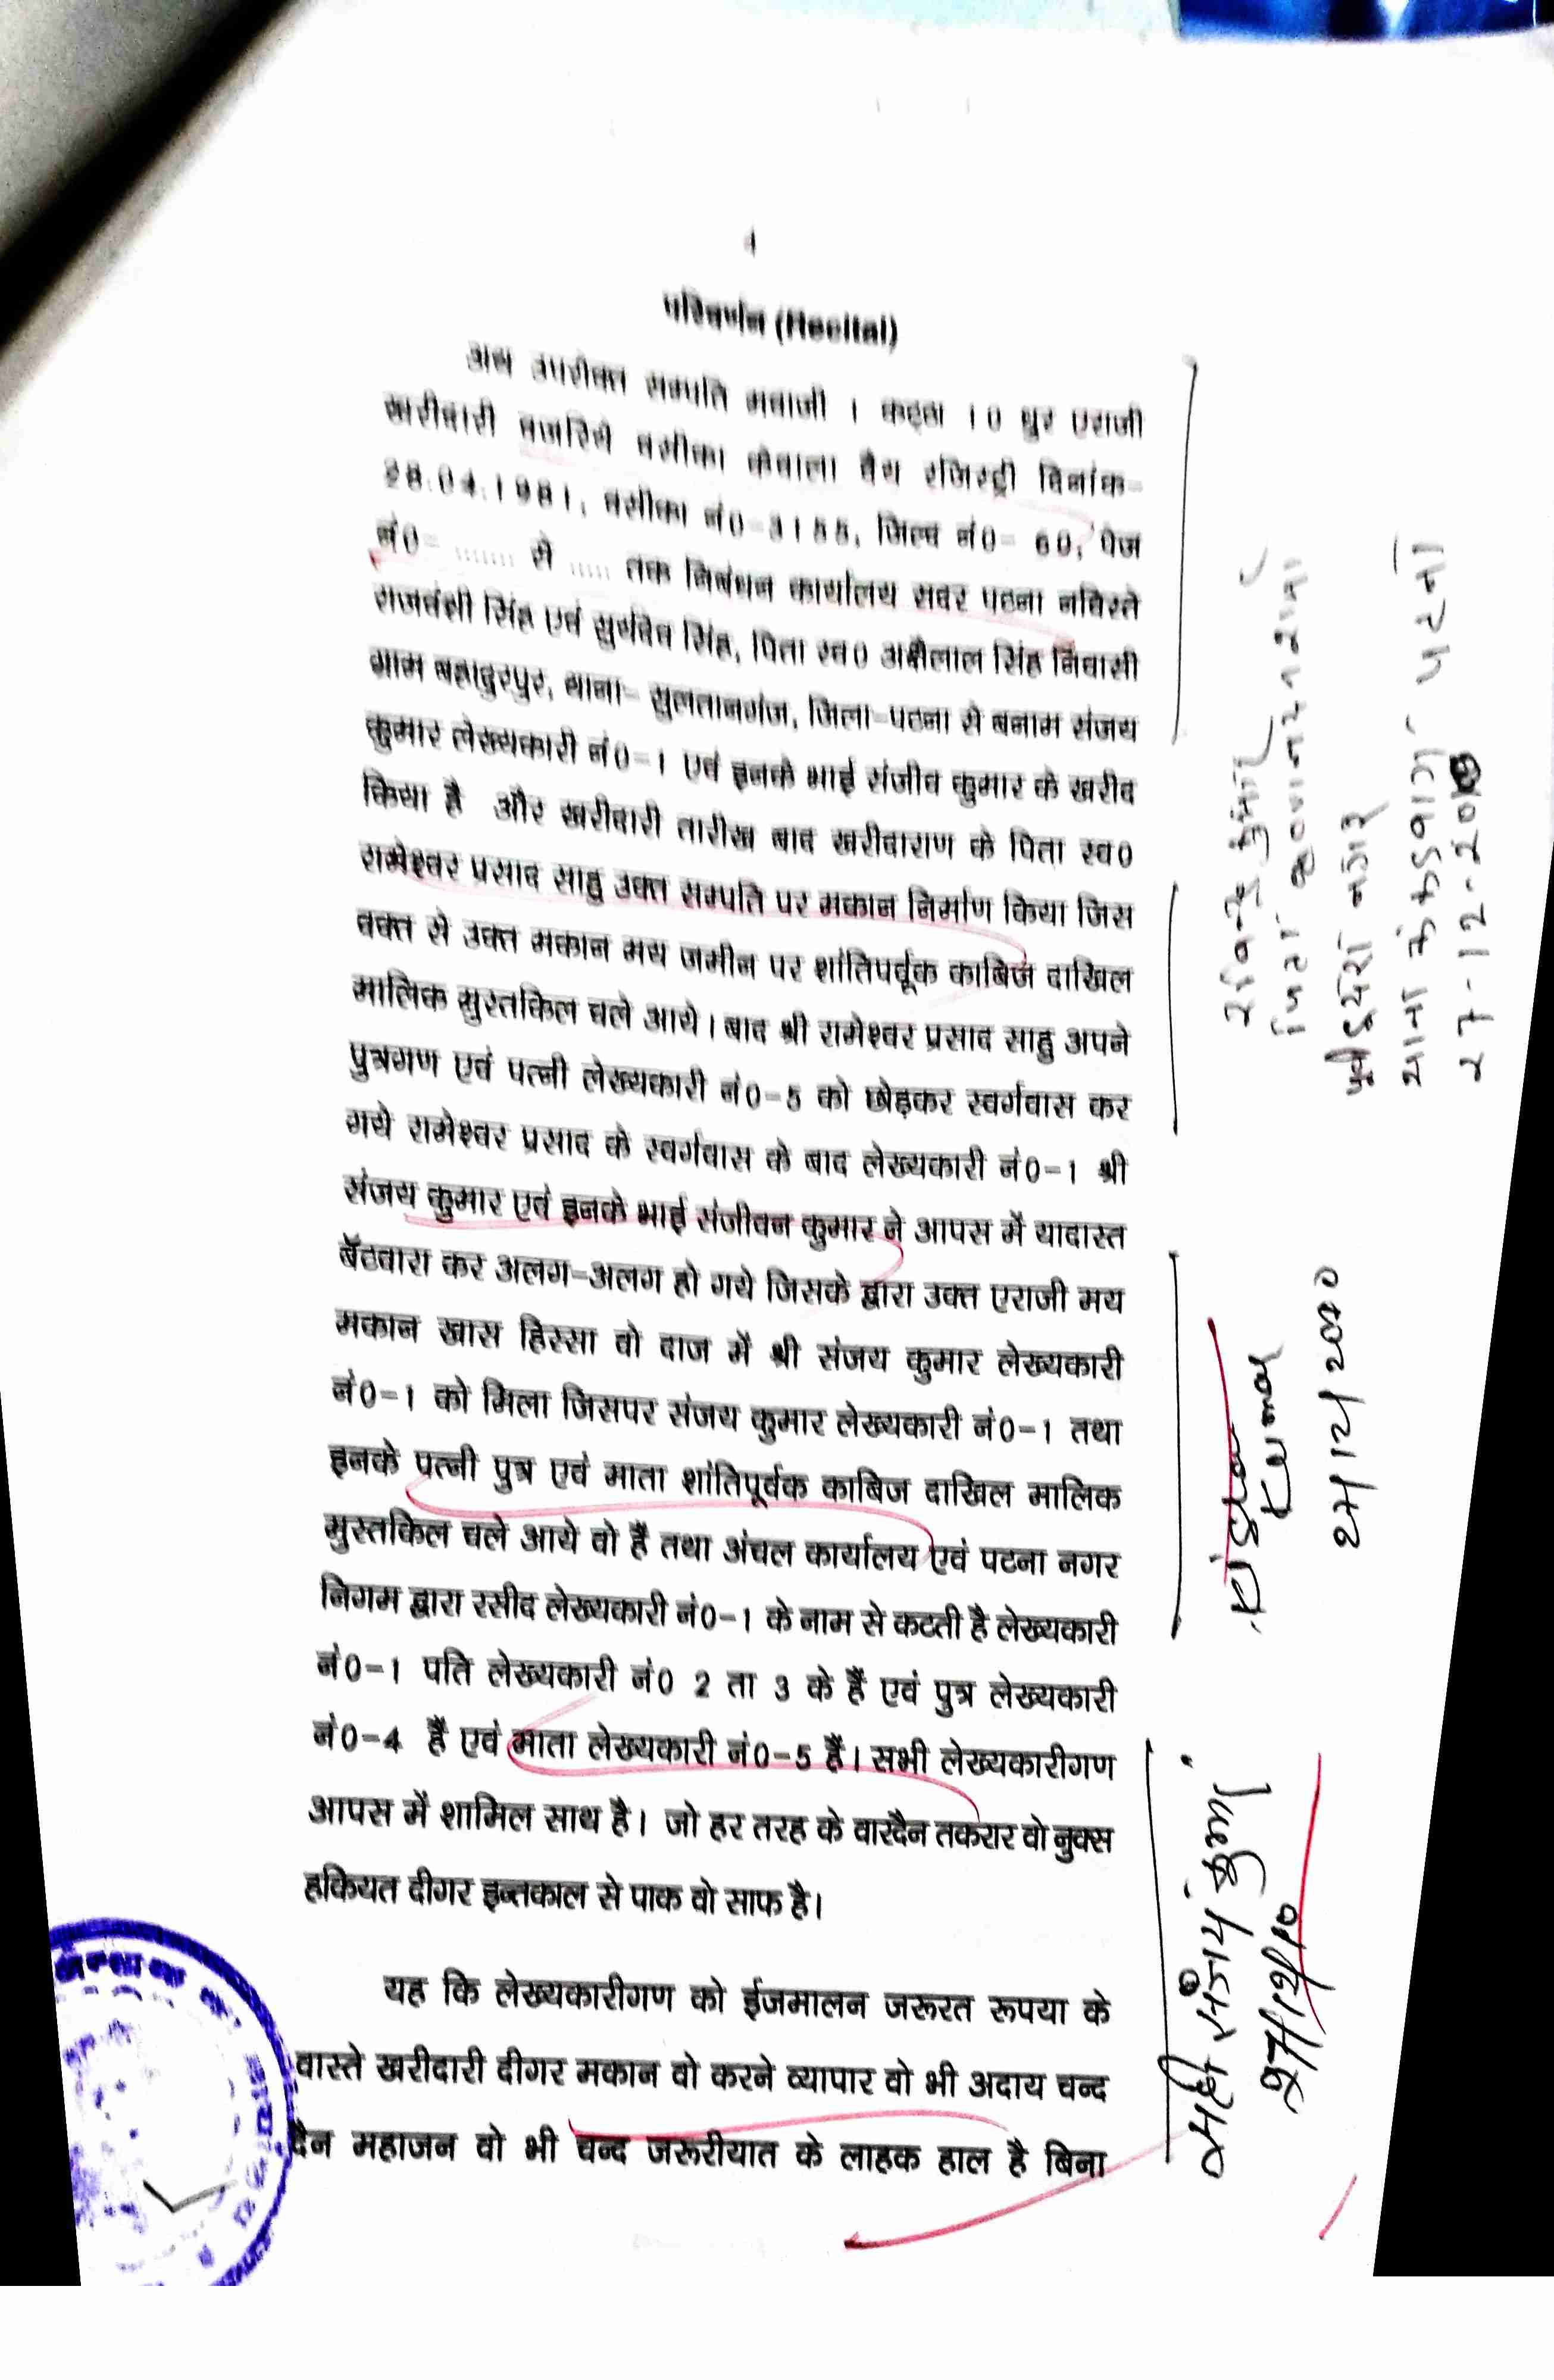 4
परिवर्णन (Recital)
अब उपरोक्त सम्पति मवाजी 1 कट्ठा 10 धुर एराजी
खरीदारी बजरिये वसीका केवाला वैय रजिस्ट्री दिनांक-
28.04.1981, वसीका नं0-3155, जिल्द नं0- 60, पेज
नं0- ........ से ..... तक निबंधन कार्यालय सदर पटना नविस्ते
राजवंशी सिंह एवं सुखदेव सिंह, पिता स्व0 सिंह निवासी
ग्राम बहादुरपुर, थाना- सुलतानगंज, जिला-पटना से बनाम संजय
कुमार लेख्यकारी नं0-1 एवं इनके भाई संजीव कुमार के खरीद
किया है और खरीदारी तारीख बाद खरीदाराण के पिता स्व0
रामेश्वर प्रसाद साहु उक्त सम्पति पर मकान निर्माण किया जिस
वक्त से उक्त मकान मय जमीन पर शांतिपर्वूक काबिज दाखिल
मालिक मुस्तकिल चले आये। बाद श्री रामेश्वर प्रसाद साहु अपने
पुत्रगण एवं पत्नी लेख्यकारी नं0-5 को छोड़कर स्वर्गवास कर
गये रामेश्वर प्रसाद के स्वर्गवास के बाद लेख्यकारी नं0-1 श्री
संजय कुमार एवं इनके भाई संजीवन कुमार ने आपस में यादास्त
बँटवारा कर अलग-अलग हो गये जिसके द्वारा उक्त एराजी मय
मकान खास हिस्सा वो दाज में श्री संजय कुमार लेख्यकारी
नं0-1 को मिला जिसपर संजय कुमार लेख्यकारी नं0-1 तथा
इनके पत्नी पुत्र एवं माता शांतिपूर्वक काबिज दाखिल मालिक
मुस्तकिल चले आये वो हैं तथा अंचल कार्यालय एवं पटना नगर
निगम द्वारा रसीद लेख्यकारी नं0-1 के नाम से कटती है लेख्यकारी
नं0-1 पति लेख्यकारी नं0 2 ता 3 के हैं एवं पुत्र लेख्यकारी
नं0-4 हैं एवं माता लेख्यकारी नं0-5 हैं। सभी लेख्यकारीगण
आपस में शामिल साथ है। जो हर तरह के वारदैन तकरार वो नुक्स
हकियत दीगर इन्तकाल से पाक वो साफ है।
यह कि लेख्यकारीगण को ईजमालन जरूरत रूपया के
वास्ते खरीदारी दीगर मकान वो करने व्यापार वो भी अदाय चन्द
दैन महाजन वो भी चन्द जरूरीयात के लाहक हाल है बिना
कुमार
पिता
नगर
थाना पटना
27-12-2010
Kumar
सही संजय कुमार